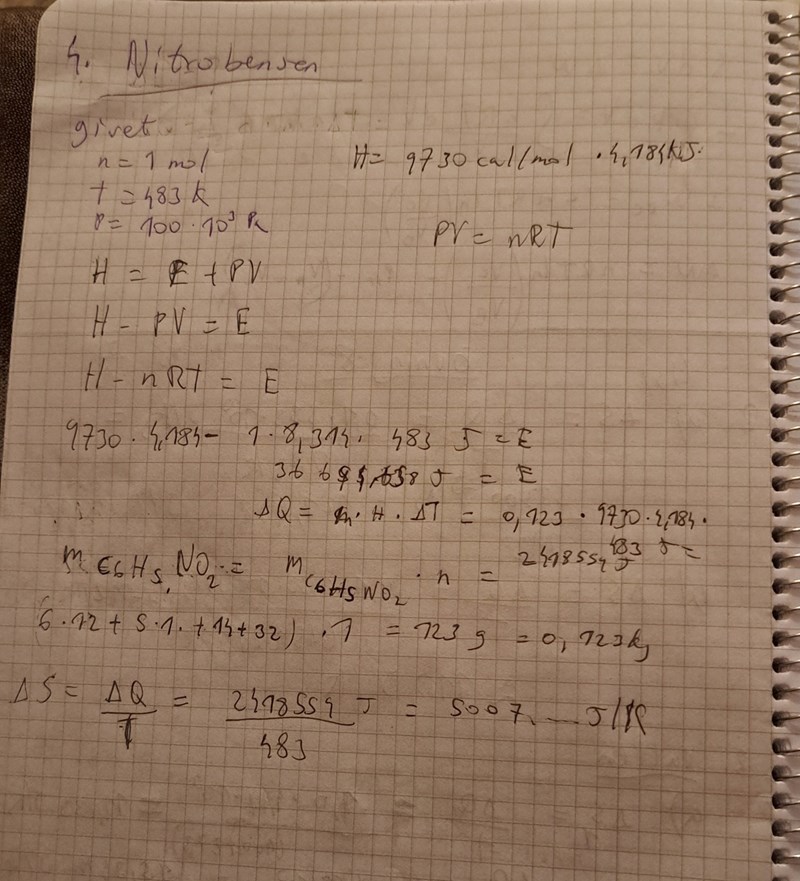 4. Nitrobensen
givet
n = 1 mol
H = 9730 cal/mol · 4,184 kJ
T = 483 K
P = 100 · 10³ Pa
PV = nRT
H = E + PV
H - PV = E
H - nRT = E
9730 · 4,184 - 1 · 8,314 · 483 J = E
J = E
ΔQ = m · H · ΔT = 0,123 · 9730 · 4,184 ·
483 J =
2418554 J
m C6H5NO2 = m C6H5NO2 · n =
6·12 + 5·1 + 14+32) · 1 = 123 g = 0,123 kg
ΔS = ΔQ/T = 2418554 J/483 = 5007, .... J/K